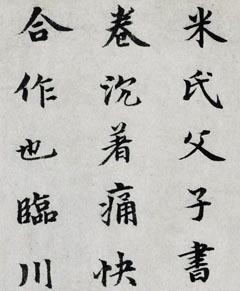 米氏父子書
卷沉著痛快
合作也臨川